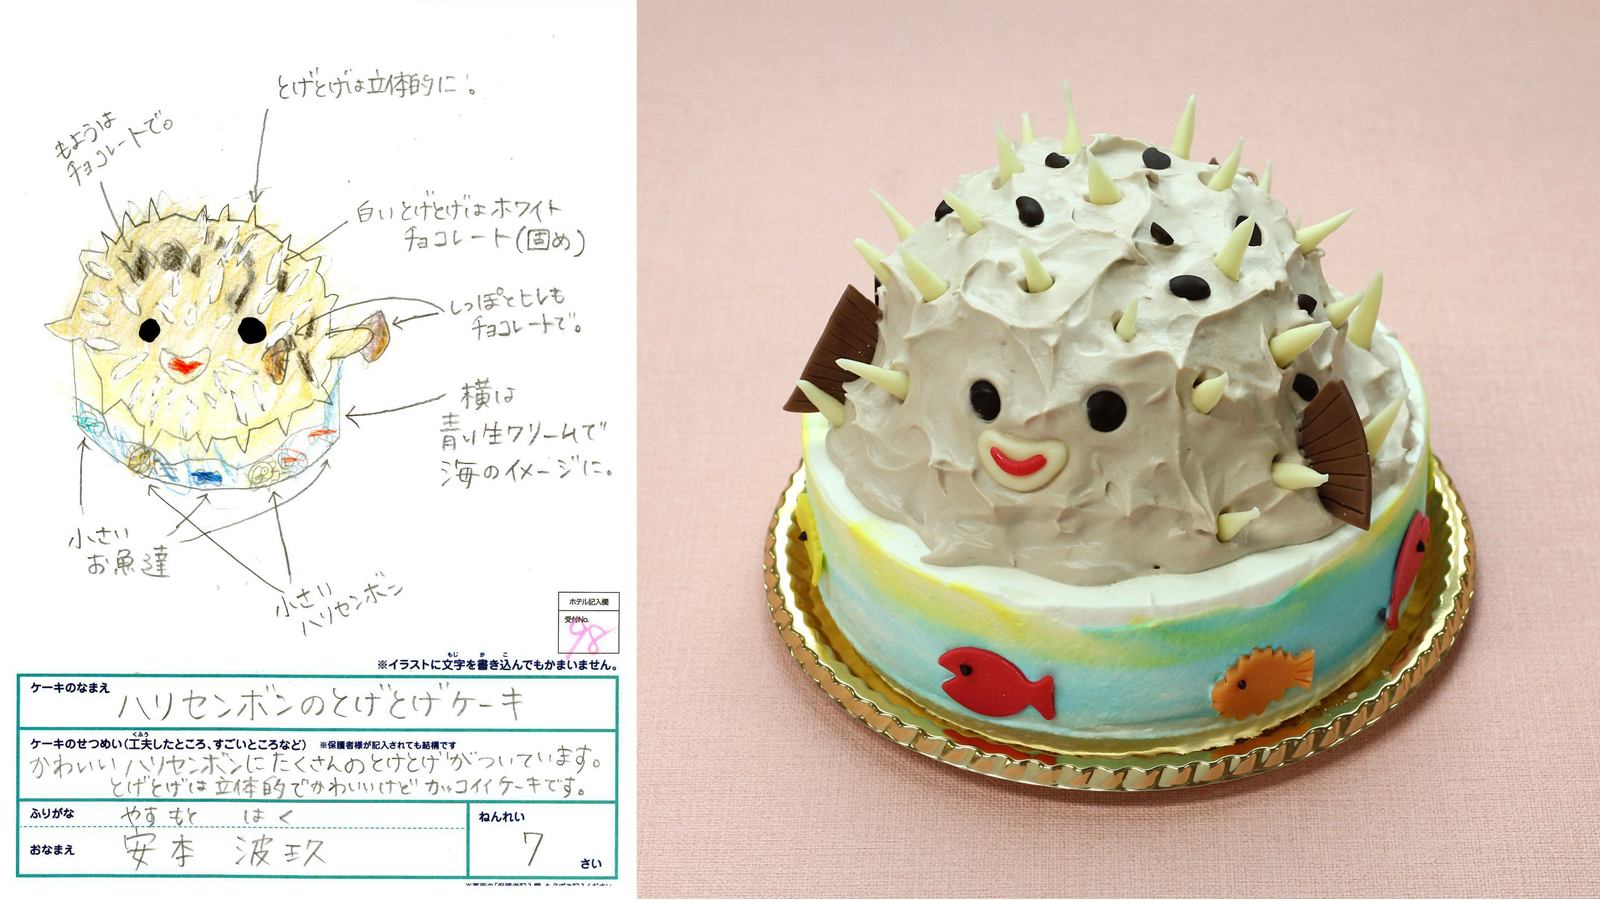 とげとげは立体的に。
もようは
チョコレートで。
白いとげとげはホワイト
チョコレート(固め)
しっぽとヒレも
チョコレートで。
横は
青い生クリームで
海のイメージに。
小さい
お魚達
小さい
ハリセンボン
ホテル記入欄
受付No.
98
もじ か こ
※イラストに文字を書き込んでもかまいません。
ケーキのなまえ
ハリセンボンのとげとげケーキ
くふう
ケーキのせつめい(工夫したところ、すごいところなど) ※保護者様が記入されても結構です
かわいいハリセンボンにたくさんのとげとげがついています。
とげとげは立体的でかわいいけどカッコイイケーキです。
ふりがな やすもと はく
ねんれい
おなまえ 安本 波玖
7 さい